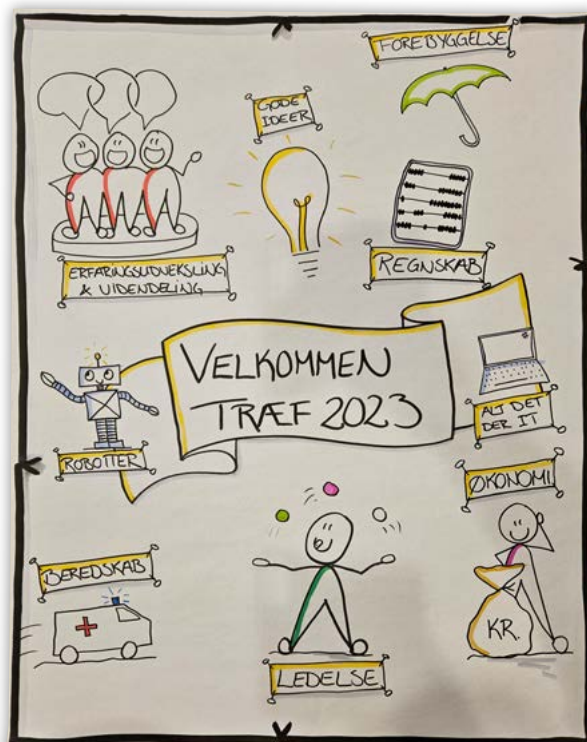 FOREBYGGELSE
GODE
IDEER
ERFARINGSUDVEKSLING
& VIDENDELING
REGNSKAB
VELKOMMEN
TRÆF 2023
ROBOTTER
ALT DET
DER IT
ØKONOMI
BEREDSKAB
KR.
LEDELSE